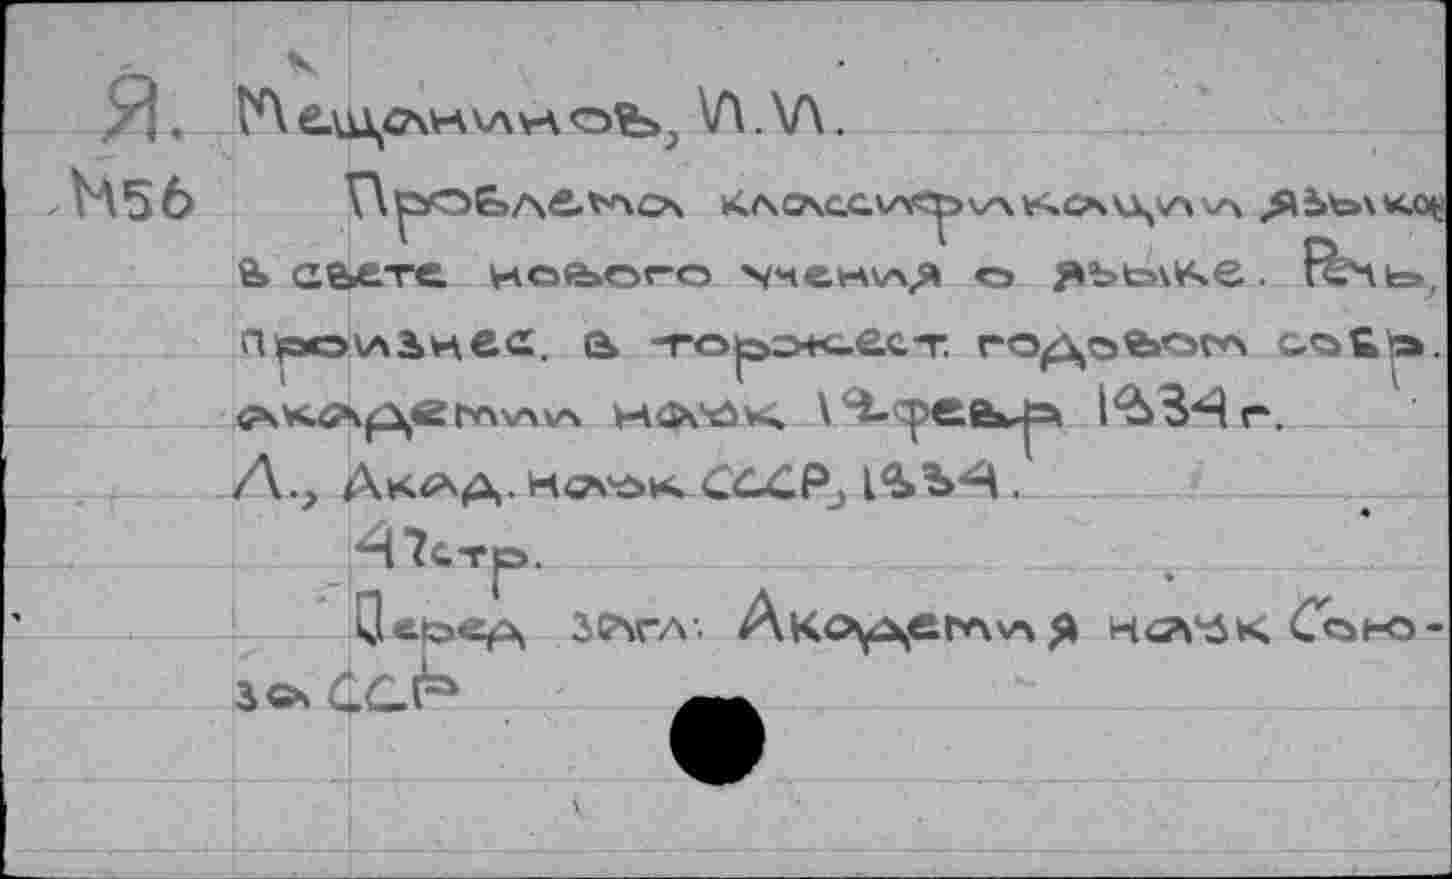 Я. Мещанинов, И.И.
М56 Проблема классификации языков
в свете нового учения о языке. Речь,
произнес. в торжест. годовом собр.
академии наук 1 февр 1934 г.
Л., Акад. наук СССР, 1934.
47стр.
Перед загл: Академия наук Сою-
за ССР